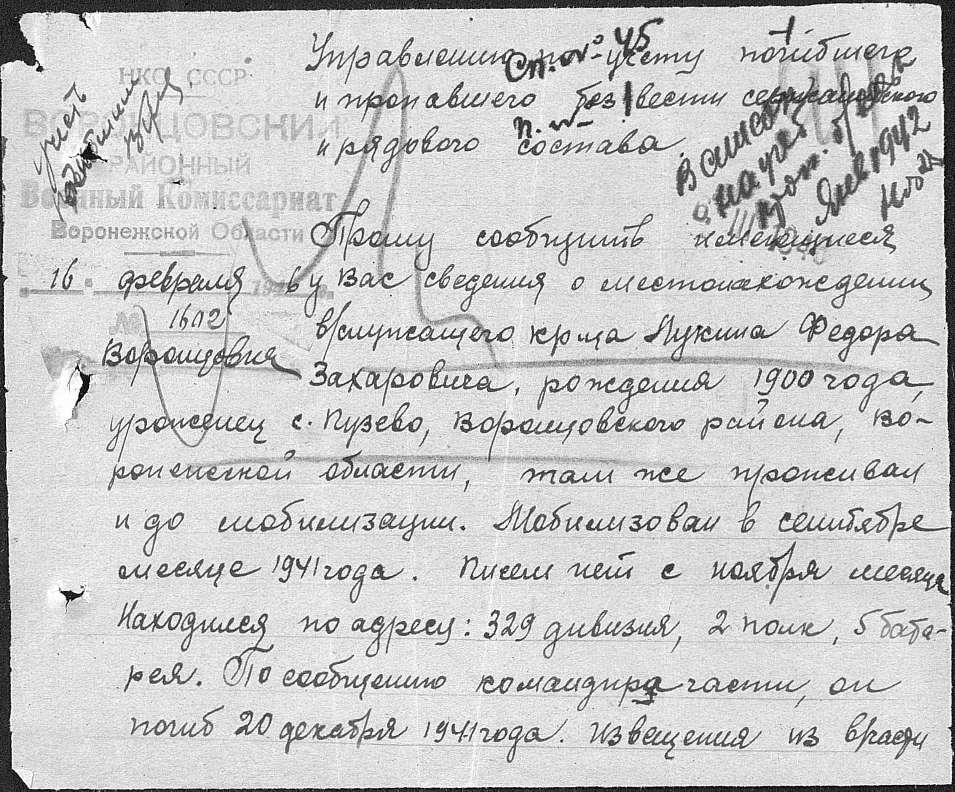 Управлению по учету погибшего
и пропавшего без вести сержантского
и рядового состава
Сп. № 45
п. № 1
учет
НКО СССР
ВОРОНЦОВСКИЙ
РАЙОННЫЙ
Военный Комиссариат
Воронежской Области
16 февраля 1946
№ 1612
Воронцовка
янв 1942
Прошу сообщить имеющиеся
у Вас сведения о местонахождении
в/служащего кр-ца Лукина Федора
Захаровича, рождения 1900 года,
уроженец с. Пузево, Воронцовского района, Во-
ронежской области, там же проживал
и до мобилизации. Мобилизован в сентябре
месяце 1941 года. Писем нет с ноября месяца
Находился по адресу: 329 дивизия, 2 полк, 5 бата-
рея. По сообщению командира части, он
погиб 20 декабря 1941 года. Извещения из